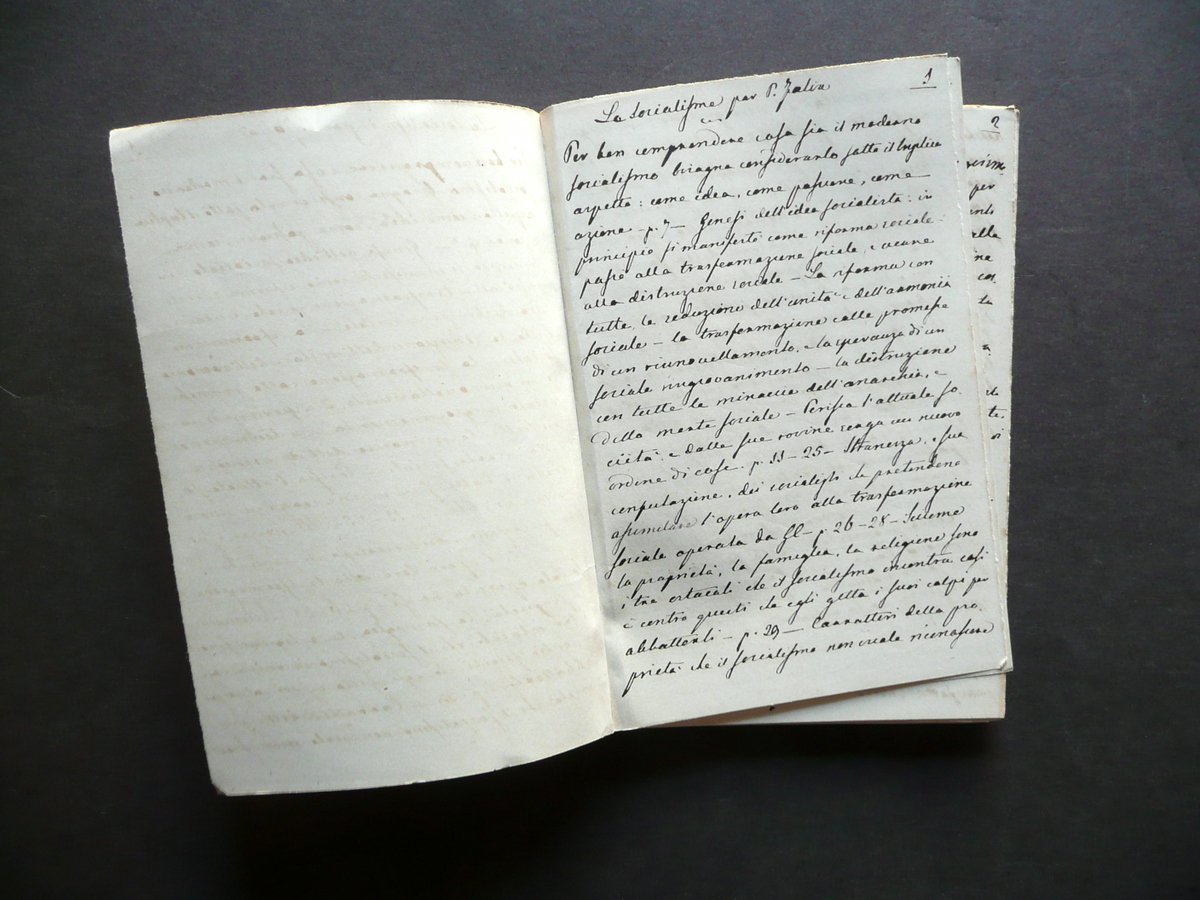 1
Le Socialisme par P. Felix
Per ben comprendere cosa sia il moderno
socialismo bisogna considerarlo sotto il triplice
aspetto: come idea, come passione, come
azione - p. 7 - Genesi dell'idea socialista: in
principio si manifestò come riforma sociale:
passò alla trasformazione sociale, e venne
alla distruzione sociale - La riforma con
tutte le seduzioni dell'unità e dell'armonia
sociale - la trasformazione colle promesse
di un rinnovellamento, e la speranza di un
sociale ringiovanimento - la distruzione
con tutte le minaccie dell'anarchia, e
della morte sociale - Perisca l'attuale so-
cietà e dalle sue rovine venga un nuovo
ordine di cose. p. 11 - 25 - Stranezza, e sua
confutazione, dei socialisti che pretendono
assimilare l'opera loro alla trasformazione
sociale operata da G. C. - p. 26 - 28 - Siccome
la proprietà, la famiglia, la religione sono
i tre ostacoli che il socialismo incontra così
è contro questi che egli getta i suoi colpi per
abbatterli - p. 29 - Caratteri della pro-
prietà che il socialismo non vuole riconoscere
2
per